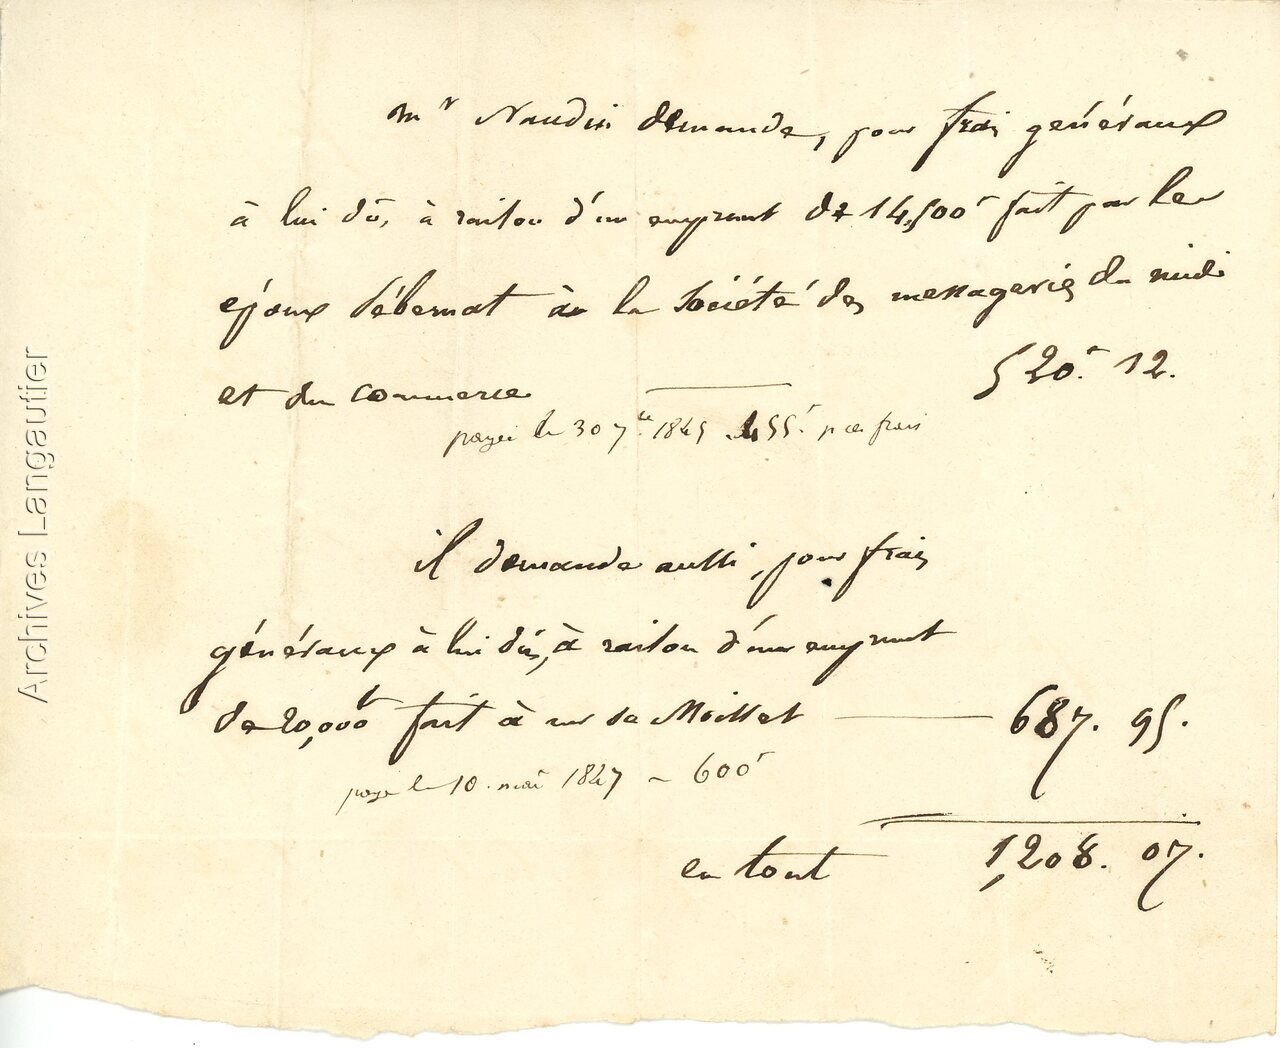 mr Naudin demande, pour frais généraux
à lui dû, à raison d'un emprunt de 14,500f fait par les
époux Débernat à la Société des messageries du midi
et du commerce 520f. 12.
payé le 30 7bre 1845 455f pr frais
il demande aussi, pour frais
généraux à lui dûs, à raison d'un emprunt
de 20,000f fait à 687. 95.
payé le 10 mai 1847 - 600f
en tout 1,208. 07.
Archives Langautier